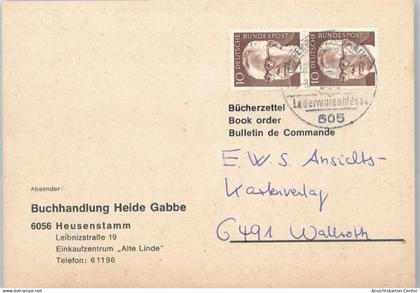 10 DEUTSCHE BUNDESPOST
10 DEUTSCHE BUNDESPOST
Lederwarenmesse
605
Bücherzettel
Book order
Bulletin de Commande
E. W. S. Ansichts-
Kartenverlag
6491 Wallroth
Absender:
Buchhandlung Heide Gabbe
6056 Heusenstamm
Leibnizstraße 19
Einkaufszentrum „Alte Linde"
Telefon: 61196
AnsichtsKarten-Center